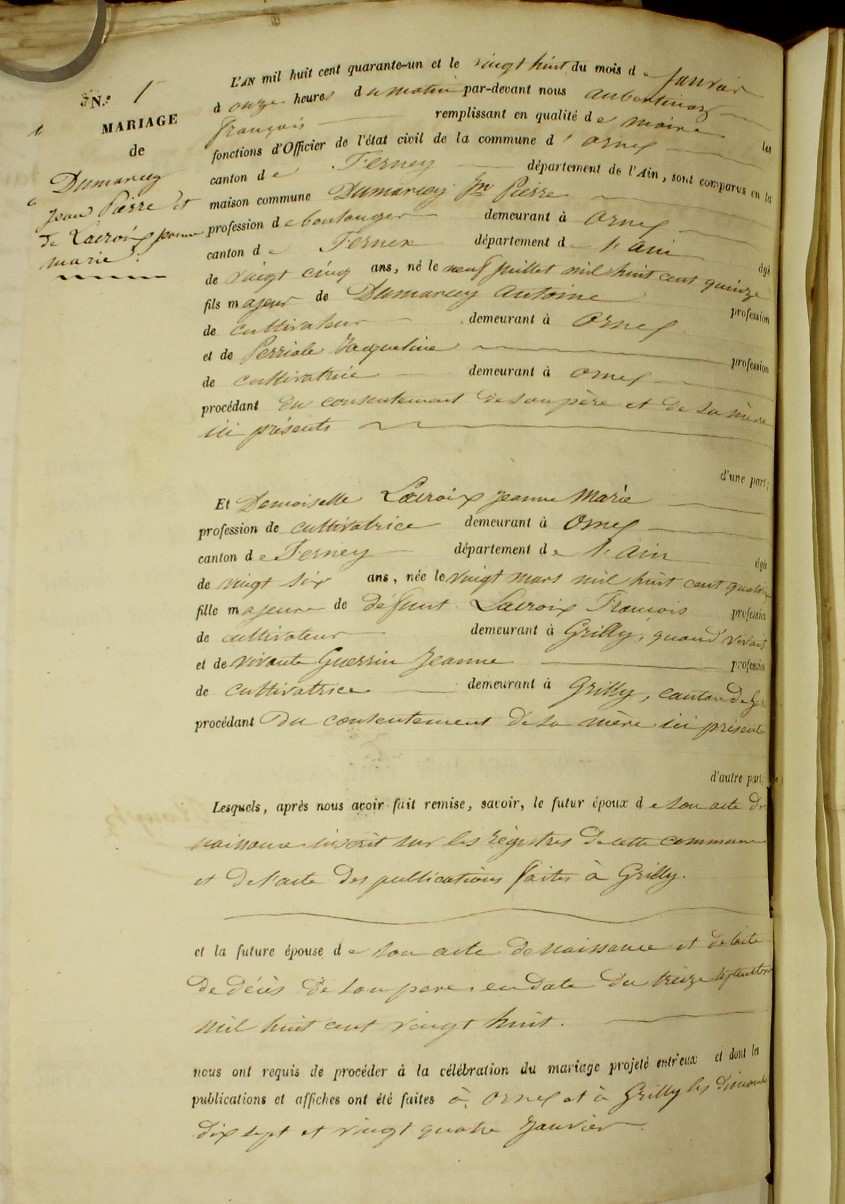 N.º 1
MARIAGE
de
Dumarcey
Jean Pierre et
de Lacroix Jeanne
marie.
L'AN mil huit cent quarante-un et le vingt huit du mois de Janvier
à onze heures du matin par-devant nous
françois remplissant en qualité de maire les
fonctions d'Officier de l'état civil de la commune d'Ornex
canton de Ferney département de l'Ain, sont comparus en la
maison commune Dumarcey Jn Pierre
profession de boulanger demeurant à Ornex
canton de Fernex département de l'Ain âgé
de vingt cinq ans, né le neuf juillet mil huit cent quinze
fils majeur de Dumarcey Antoine profession
de cultivateur demeurant à Ornex
et de Jacqueline profession
de cultivatrice demeurant à Ornex
procédant du consentement de son père et de sa mère
ici présents
d'une part;
Et Demoiselle Lacroix Jeanne Marie
profession de cultivatrice demeurant à Ornex
canton de Ferney département de l'Ain âgée
de vingt six ans, née le vingt mars mil huit cent
fille majeure de défunt Lacroix François profession
de cultivateur demeurant à Grilly, quand vivait
et de vivante Guerrin Jeanne profession
de cultivatrice demeurant à Grilly, canton de Gex
procédant du consentement de sa mère ici présente
d'autre part.
Lesquels, après nous avoir fait remise, savoir, le futur époux de son acte de
naissance inscrit sur les régistres de cette commune
et de l'acte des publications faites à Grilly.
et la future épouse de son acte de naissance et de l'acte
de décès de son pere, en date du treize septembre
mil huit cent vingt huit.
nous ont requis de procéder à la célébration du mariage projeté entr'eux et dont les
publications et affiches ont été faites à Ornex et à Grilly les dimanches
dix sept et vingt quatre Janvier.